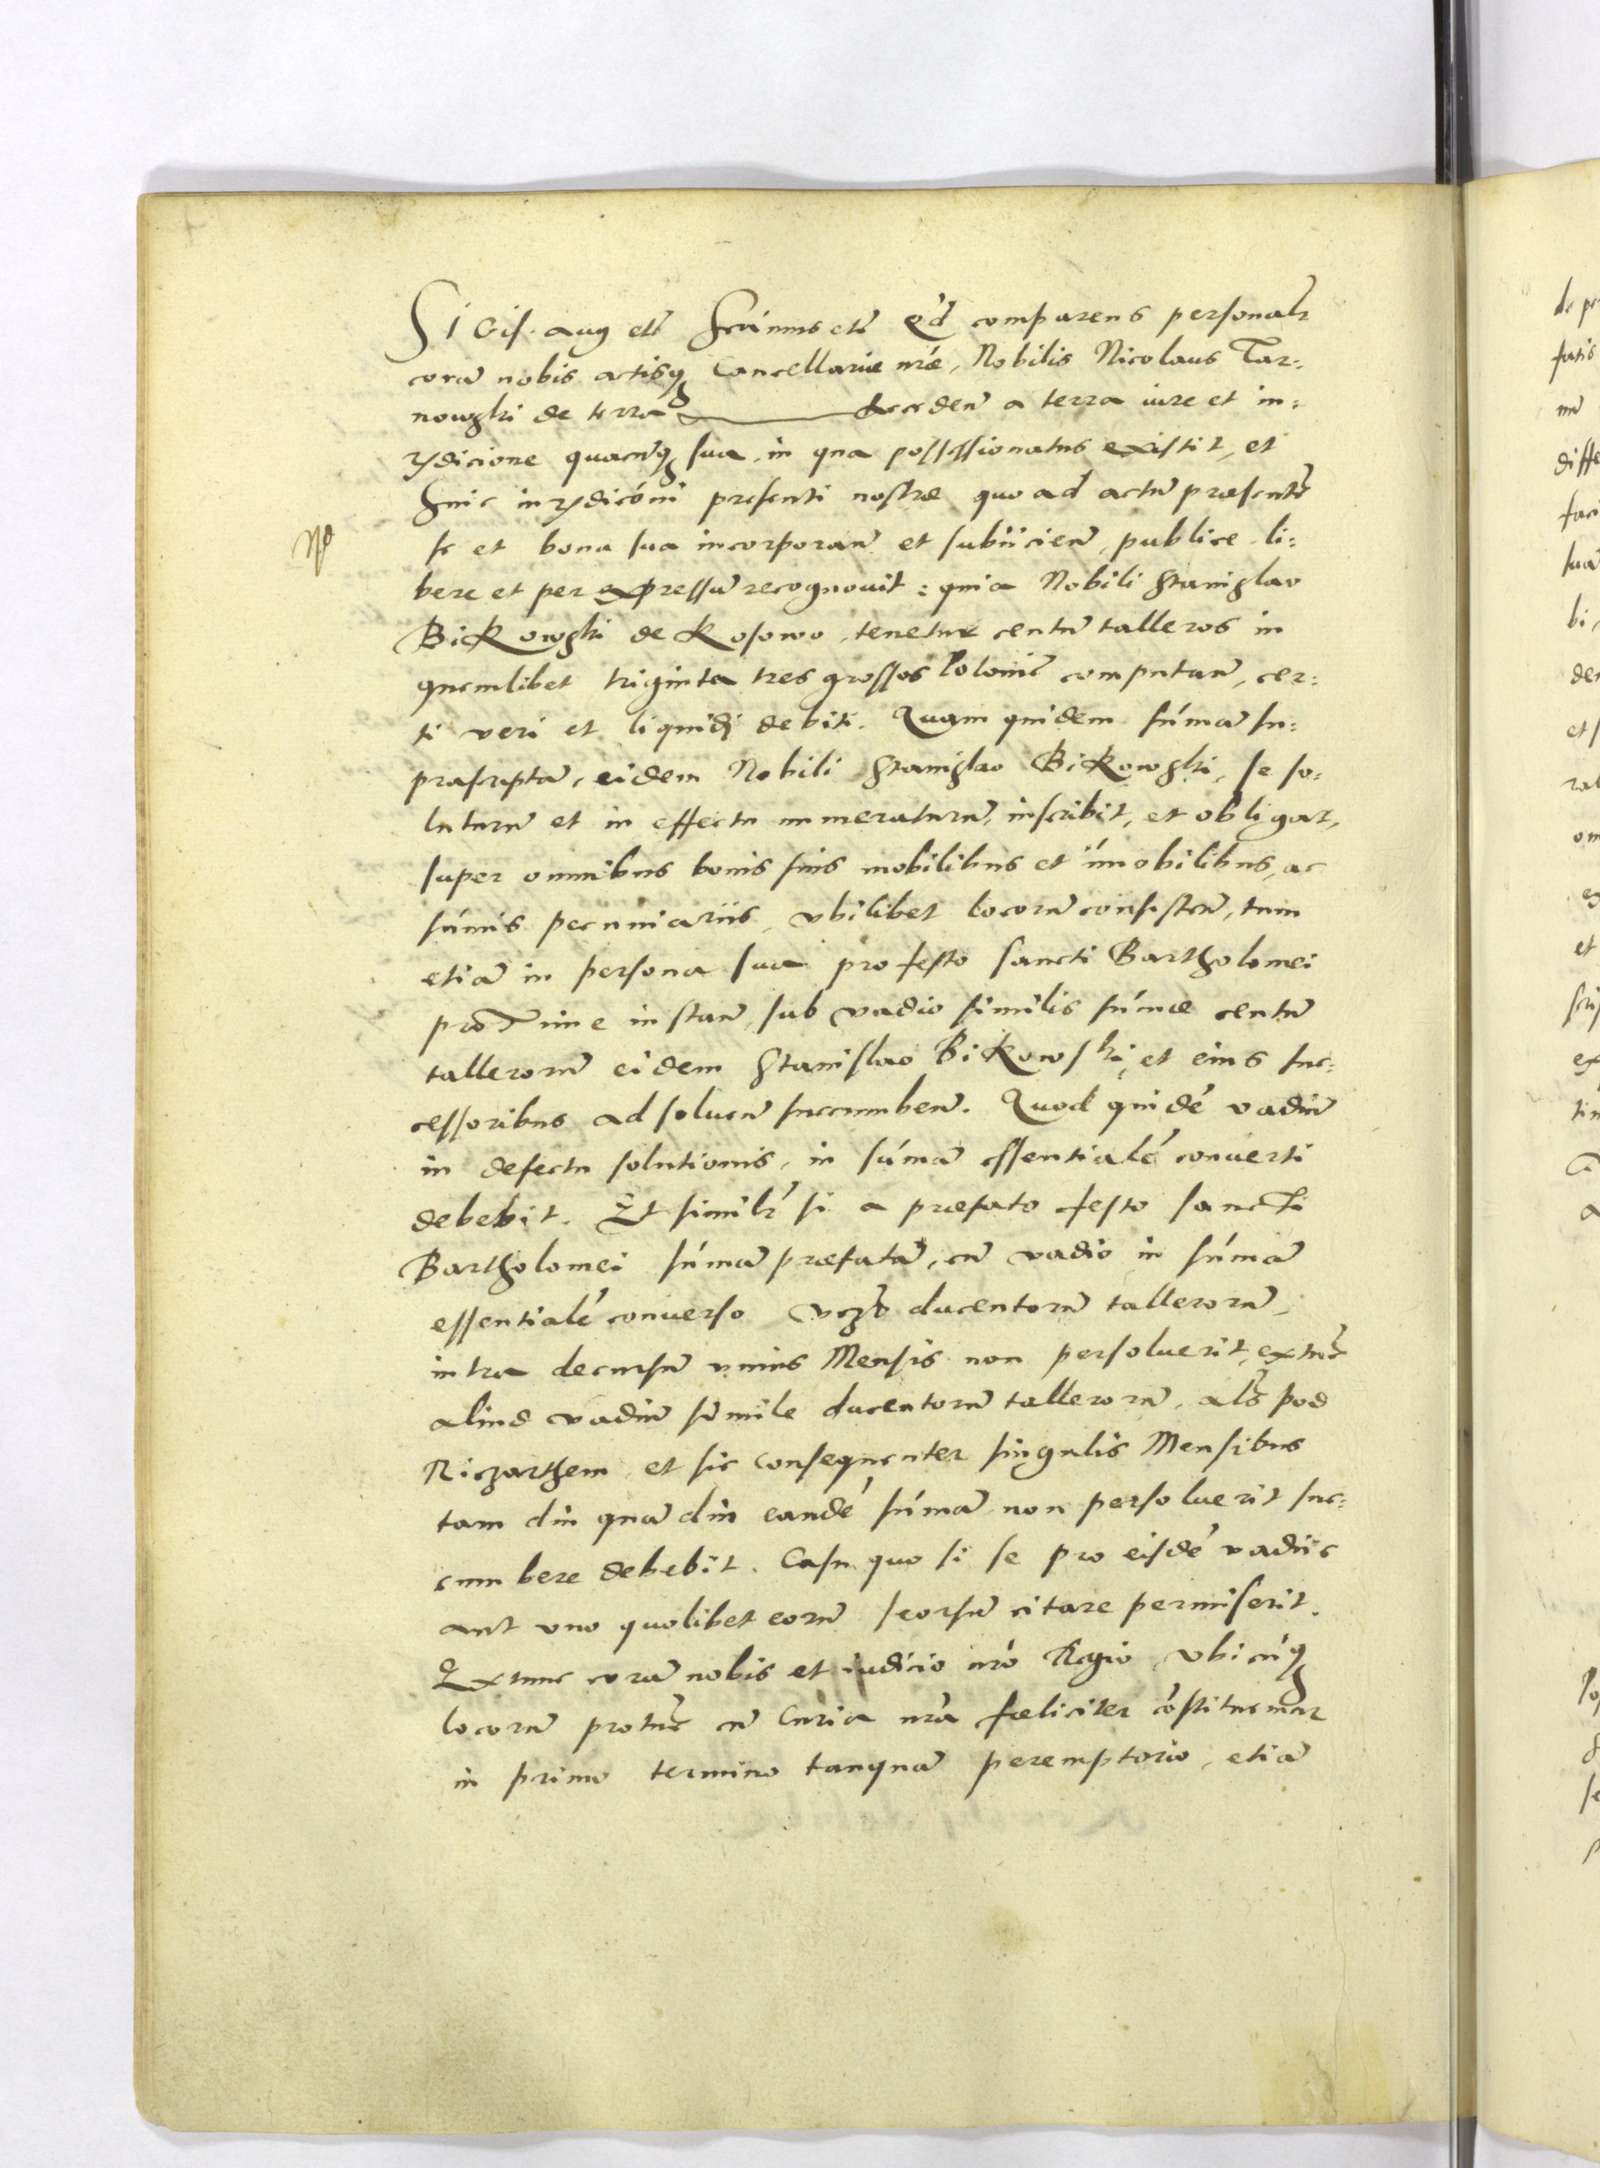 SIGis. aug etc̃ Scímus etc̃ Qđ comparens personalr
corã nobis actisq Cancellariæ nrẽ, Nobilis Nicolaus Tar:
nowski de terra recedeñ a terra iure et iu:
rydicione quacũq sua, in qua possessionatus existit, et
huic iurydicóni presenti nostræ quo ad actũ præsentẽ
se et bona sua incorporañ et subiicieñ, publice li:
bere et per expressũ recognouit: quia Nobili Stanislao
BiKowski de Kosowo, tenetur centũ talleros in
quemlibet triginta tres grossos Polonic̃ computañ, cer:
ti veri et liquidi debiti. Quam quidem súmã su:
prascriptã, eidem Nobili Stanislao BiKowski, se so:
luturũ et in effectu numeraturũ, inscribit, et obligat,
super omnibus bonis suis mobilibus et ímobilibus, ac
súmis pecuniariis, vbilibet locorũ consisteñ, tum
etiã in persona sua pro festo sancti Bartholomei
proxime instañ, sub vadio similis súmæ centũ
tallerorũ eidem Stanislao BiKowski, et eius suc:
cessoribus ad solueñ succumbeñ. Quod quidé vadiũ
in defectu solutionis, in súmã essentialé conuerti
debebit. Et similr si a præfato festo sancti
Bartholomei súmã præfatã, cũ vadio in súmã
essentialé conuerso vczt ducentorũ tallerorũ,
intra decursũ vnius Mensis non persoluerit, extũc
aliud vadiũ simile ducentorũ tallerorũ, als̃ pod
Riczarthem, et sic consequenter singulis Mensibus
tam diu quã diu eandé súmã non persoluerit suc:
cumbere debebit. Casu quo si se pro eisdé vadiis
aut vno quolibet eorũ seorsũ citare permiserit.
Extunc corã nobis et iudicio nró Regio, vbicúq
locorũ protũc cũ Curia nrã fæliciter cóstituemur
in primo termino tanquã peremptorio, etiã